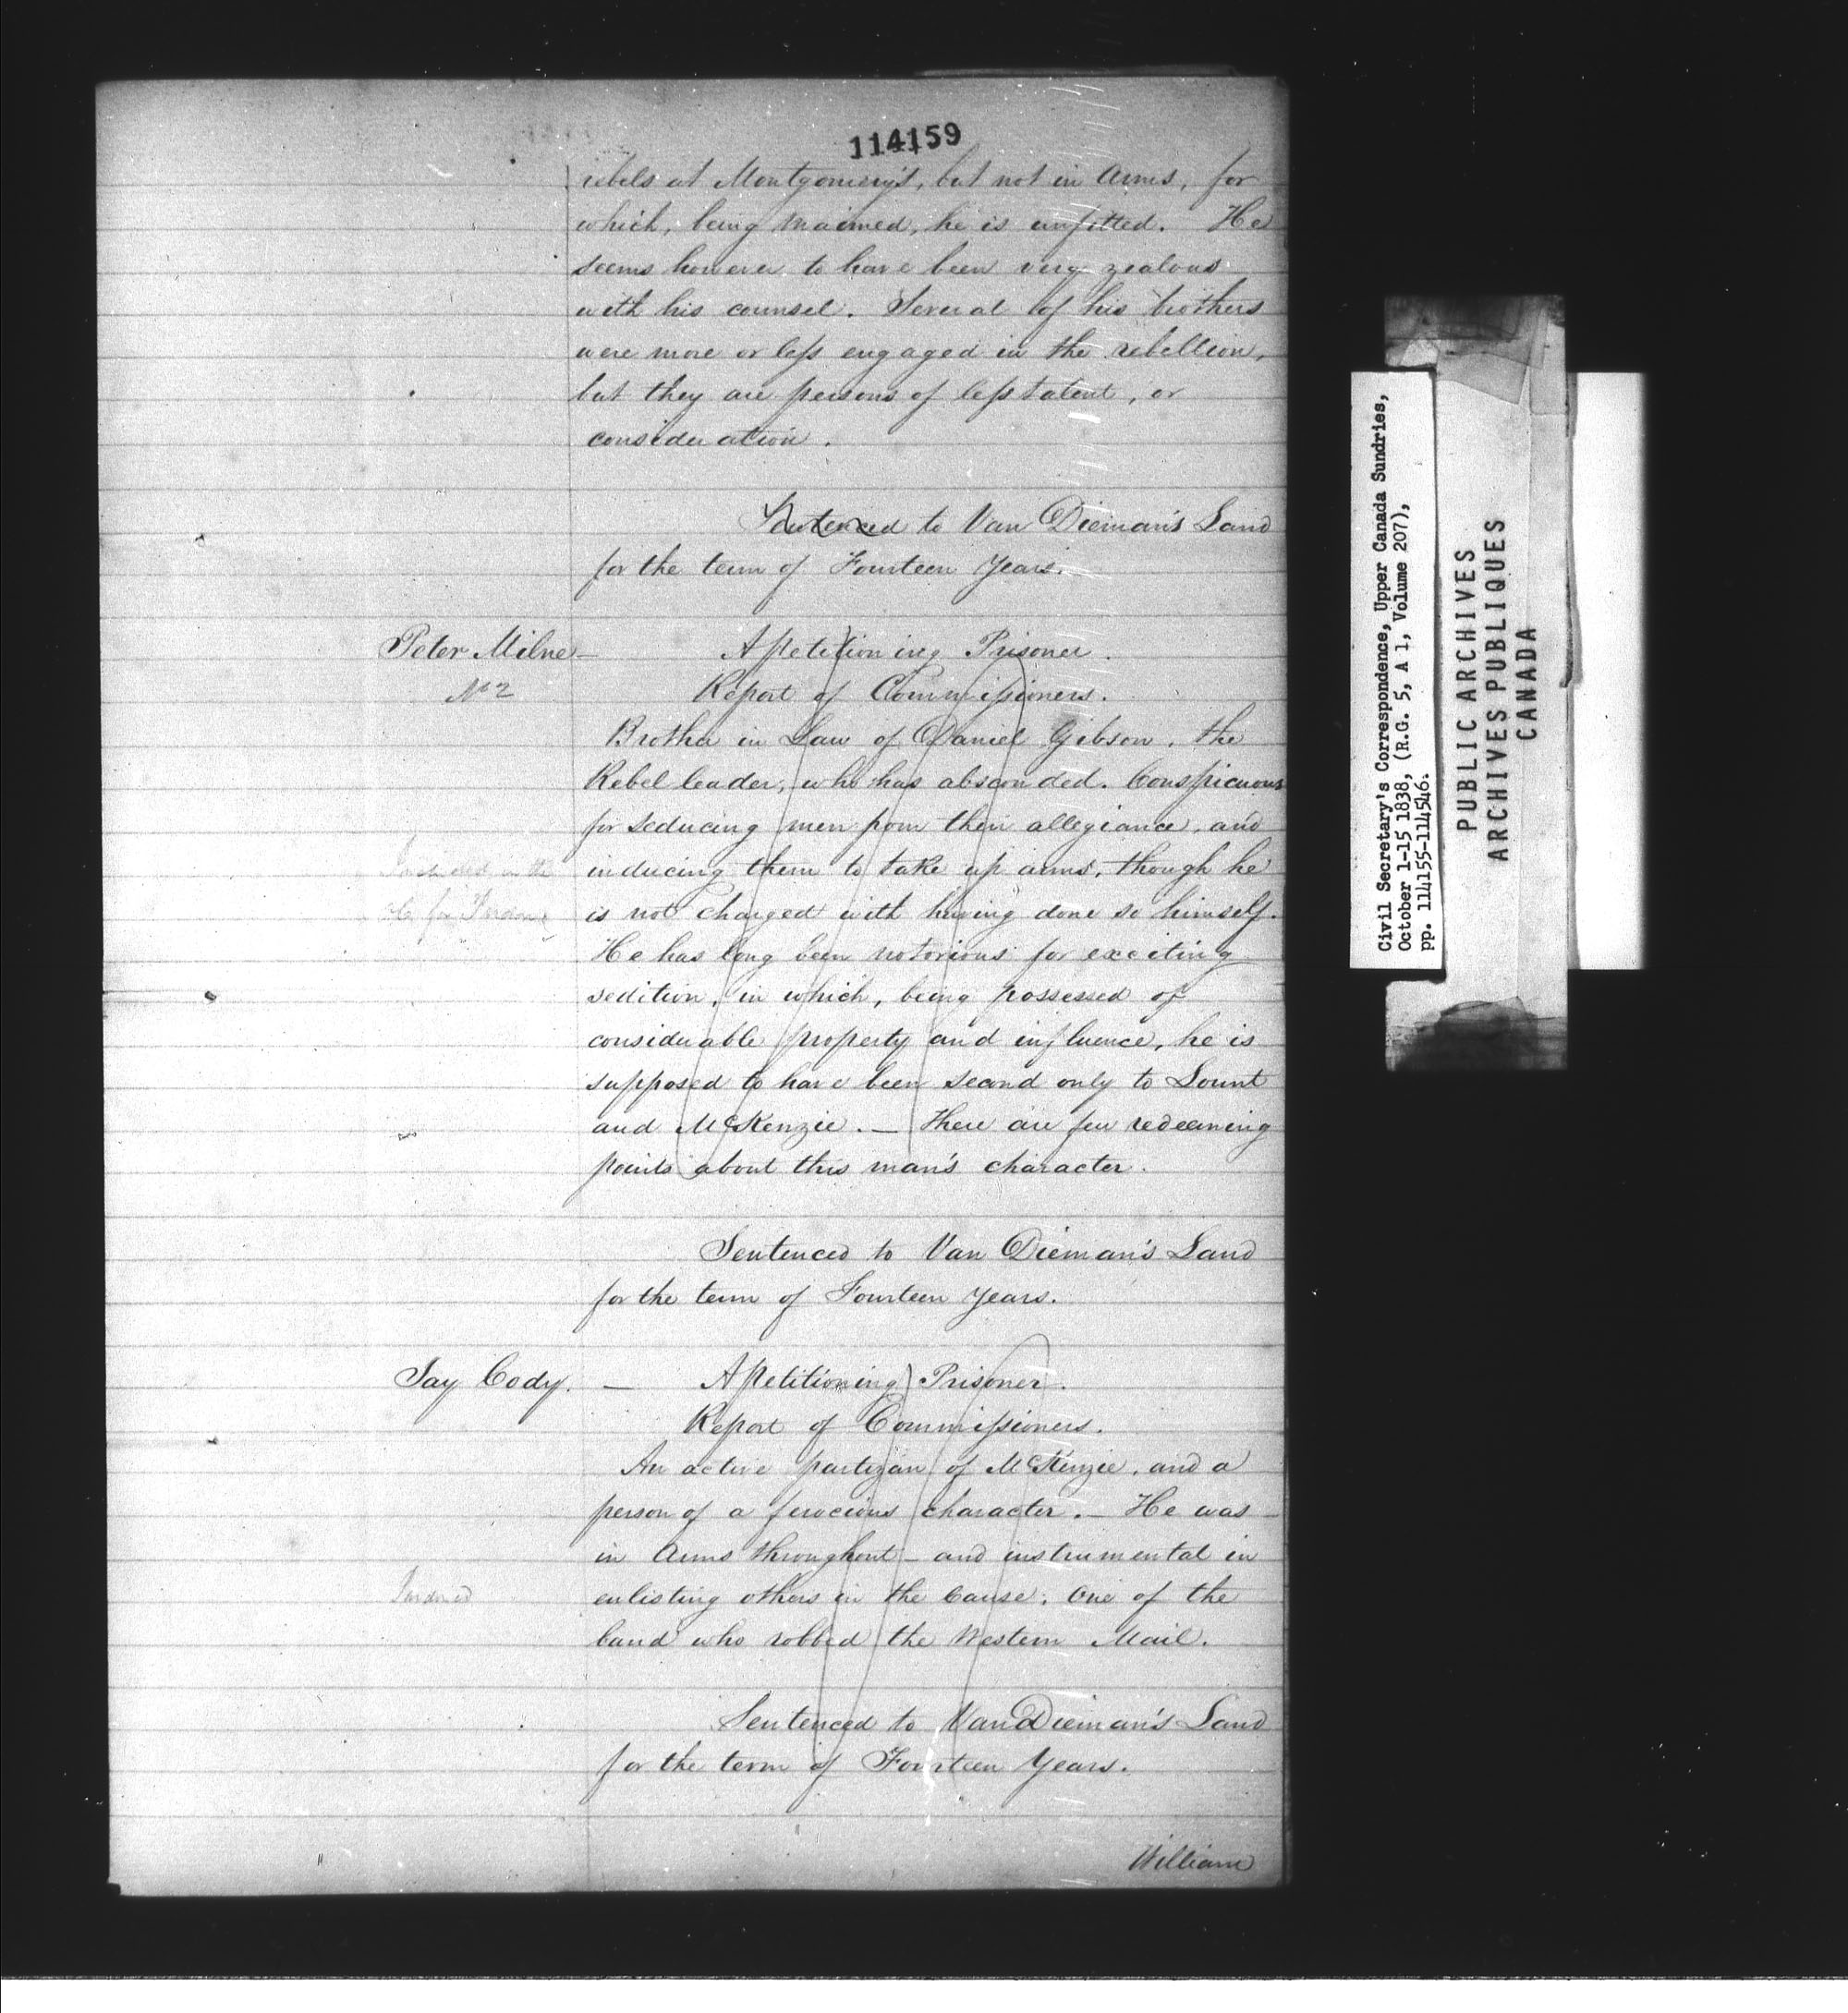 114159
rebels at Montgomery's, but not in Arms, for
which, being maimed, he is unfitted. He
seems however to have been very zealous
with his counsel. Several of his brothers
were more or less engaged in the rebellion,
but they are persons of less talent, or
consideration.
Sentenced to Van Dieman's Land
for the term of Fourteen Years.
Peter Milne — A Petitioning Prisoner.
No 2 Report of Commissioners.
Brother in Law of Daniel Gibson, the
Rebel leader, who has absconded. Conspicuous
for seducing men from their allegiance, and
inducing them to take up arms, though he
is not charged with having done so himself.
He has long been notorious for exciting
sedition, in which, being possessed of
considerable property and influence, he is
supposed to have been second only to Lount
and McKenzie. — There are few redeeming
points about this man's character.
Sentenced to Van Dieman's Land
for the term of Fourteen Years.
Jay Cody. — A Petitioning Prisoner.
Report of Commissioners.
An active partizan of McKenzie, and a
person of a ferocious character. — He was
in Arms throughout — and instrumental in
enlisting others in the Cause; One of the
band who robbed the Western Mail.
Sentenced to Van Dieman's Land
for the term of Fourteen Years.
William
Civil Secretary's Correspondence, Upper Canada Sundries,
October 1-15 1838, (R.G. 5, A 1, Volume 207),
pp. 114155-114546.
PUBLIC ARCHIVES
ARCHIVES PUBLIQUES
CANADA